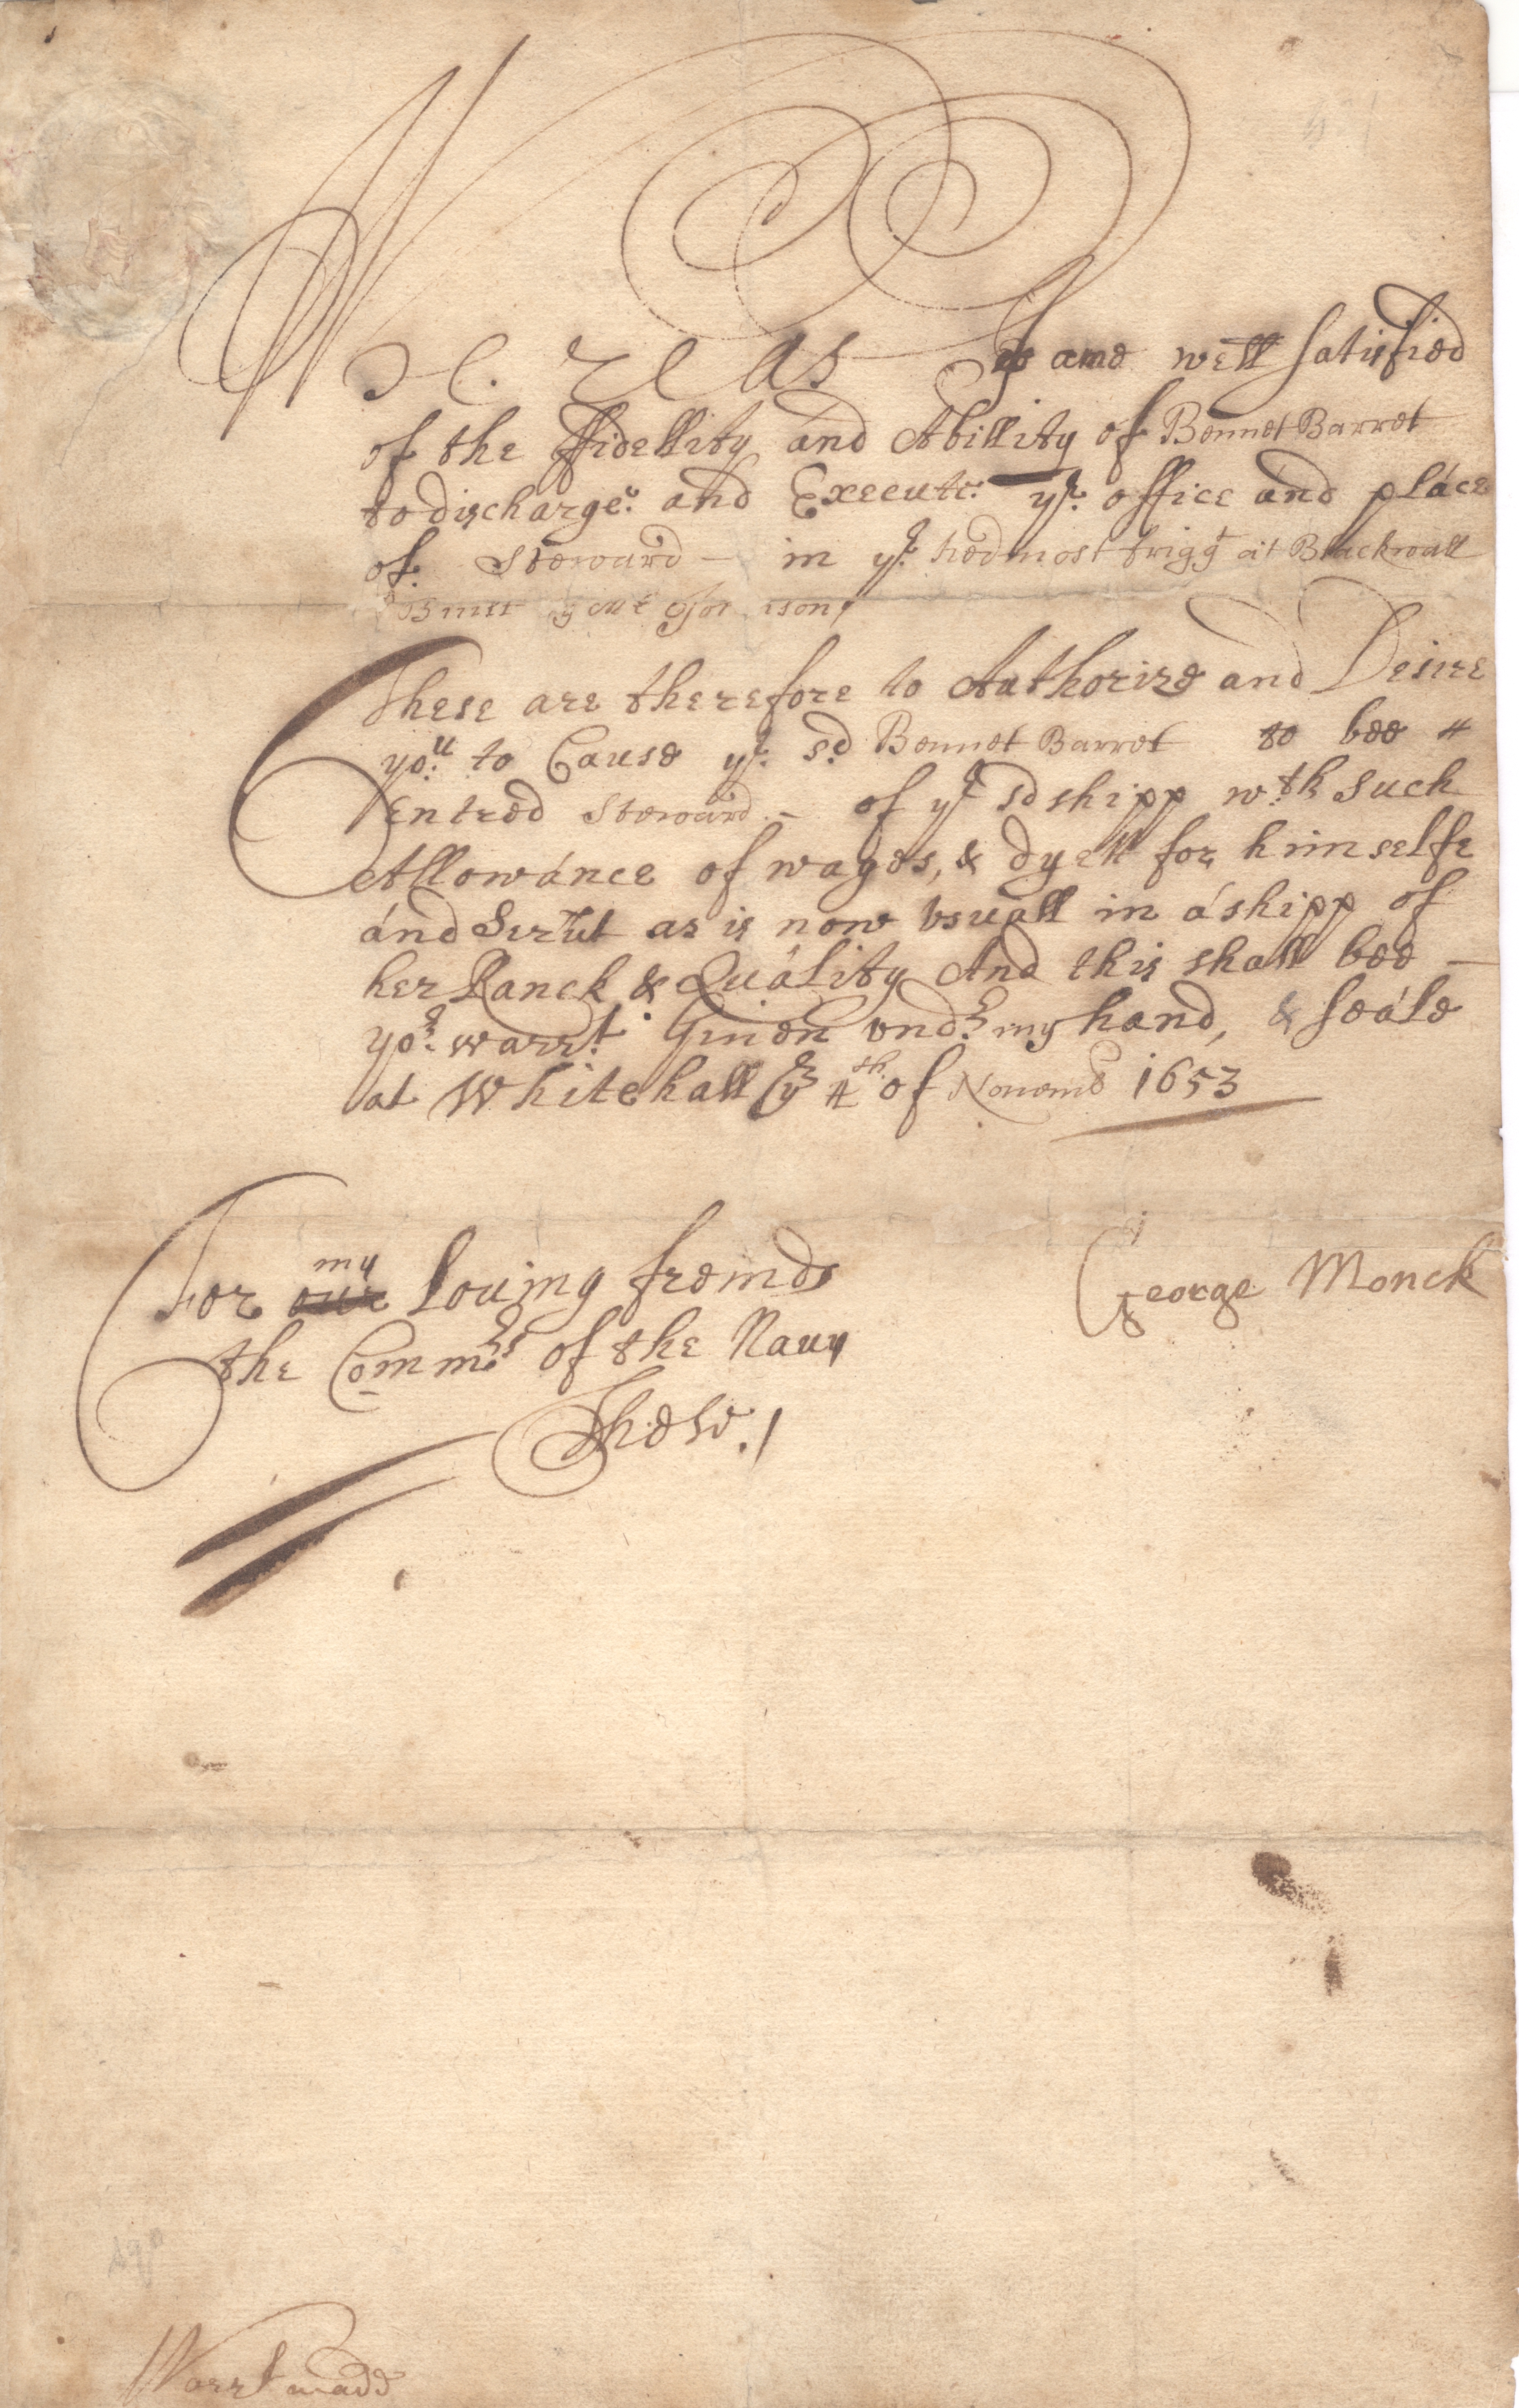 Whereas I ame well satisfied
of the ffidellity and Abillity of Bennet Barret
to discharge and Execute ye office and place
of Steward – in ye hedmost frigg^t at Blackwall
Built by Mr Johnson
These are therefore to Authorize and Desire
yo^u to Cause ye sd Bennet Barret to bee
Entred Steward – of ye sd shipp w^th such
Allowance of wages, & dyett for himselfe
and Servt as is now vsuall in a shipp of
her Ranck & Quality And this shall bee –
yo^r warr^t. Giuen vnd^r my hand, & seale
at Whitehall ye 4^th of Nouemb 1653
George Monck
For my louing freinds
the Comm^rs of the Nauy
These./
Warrt made